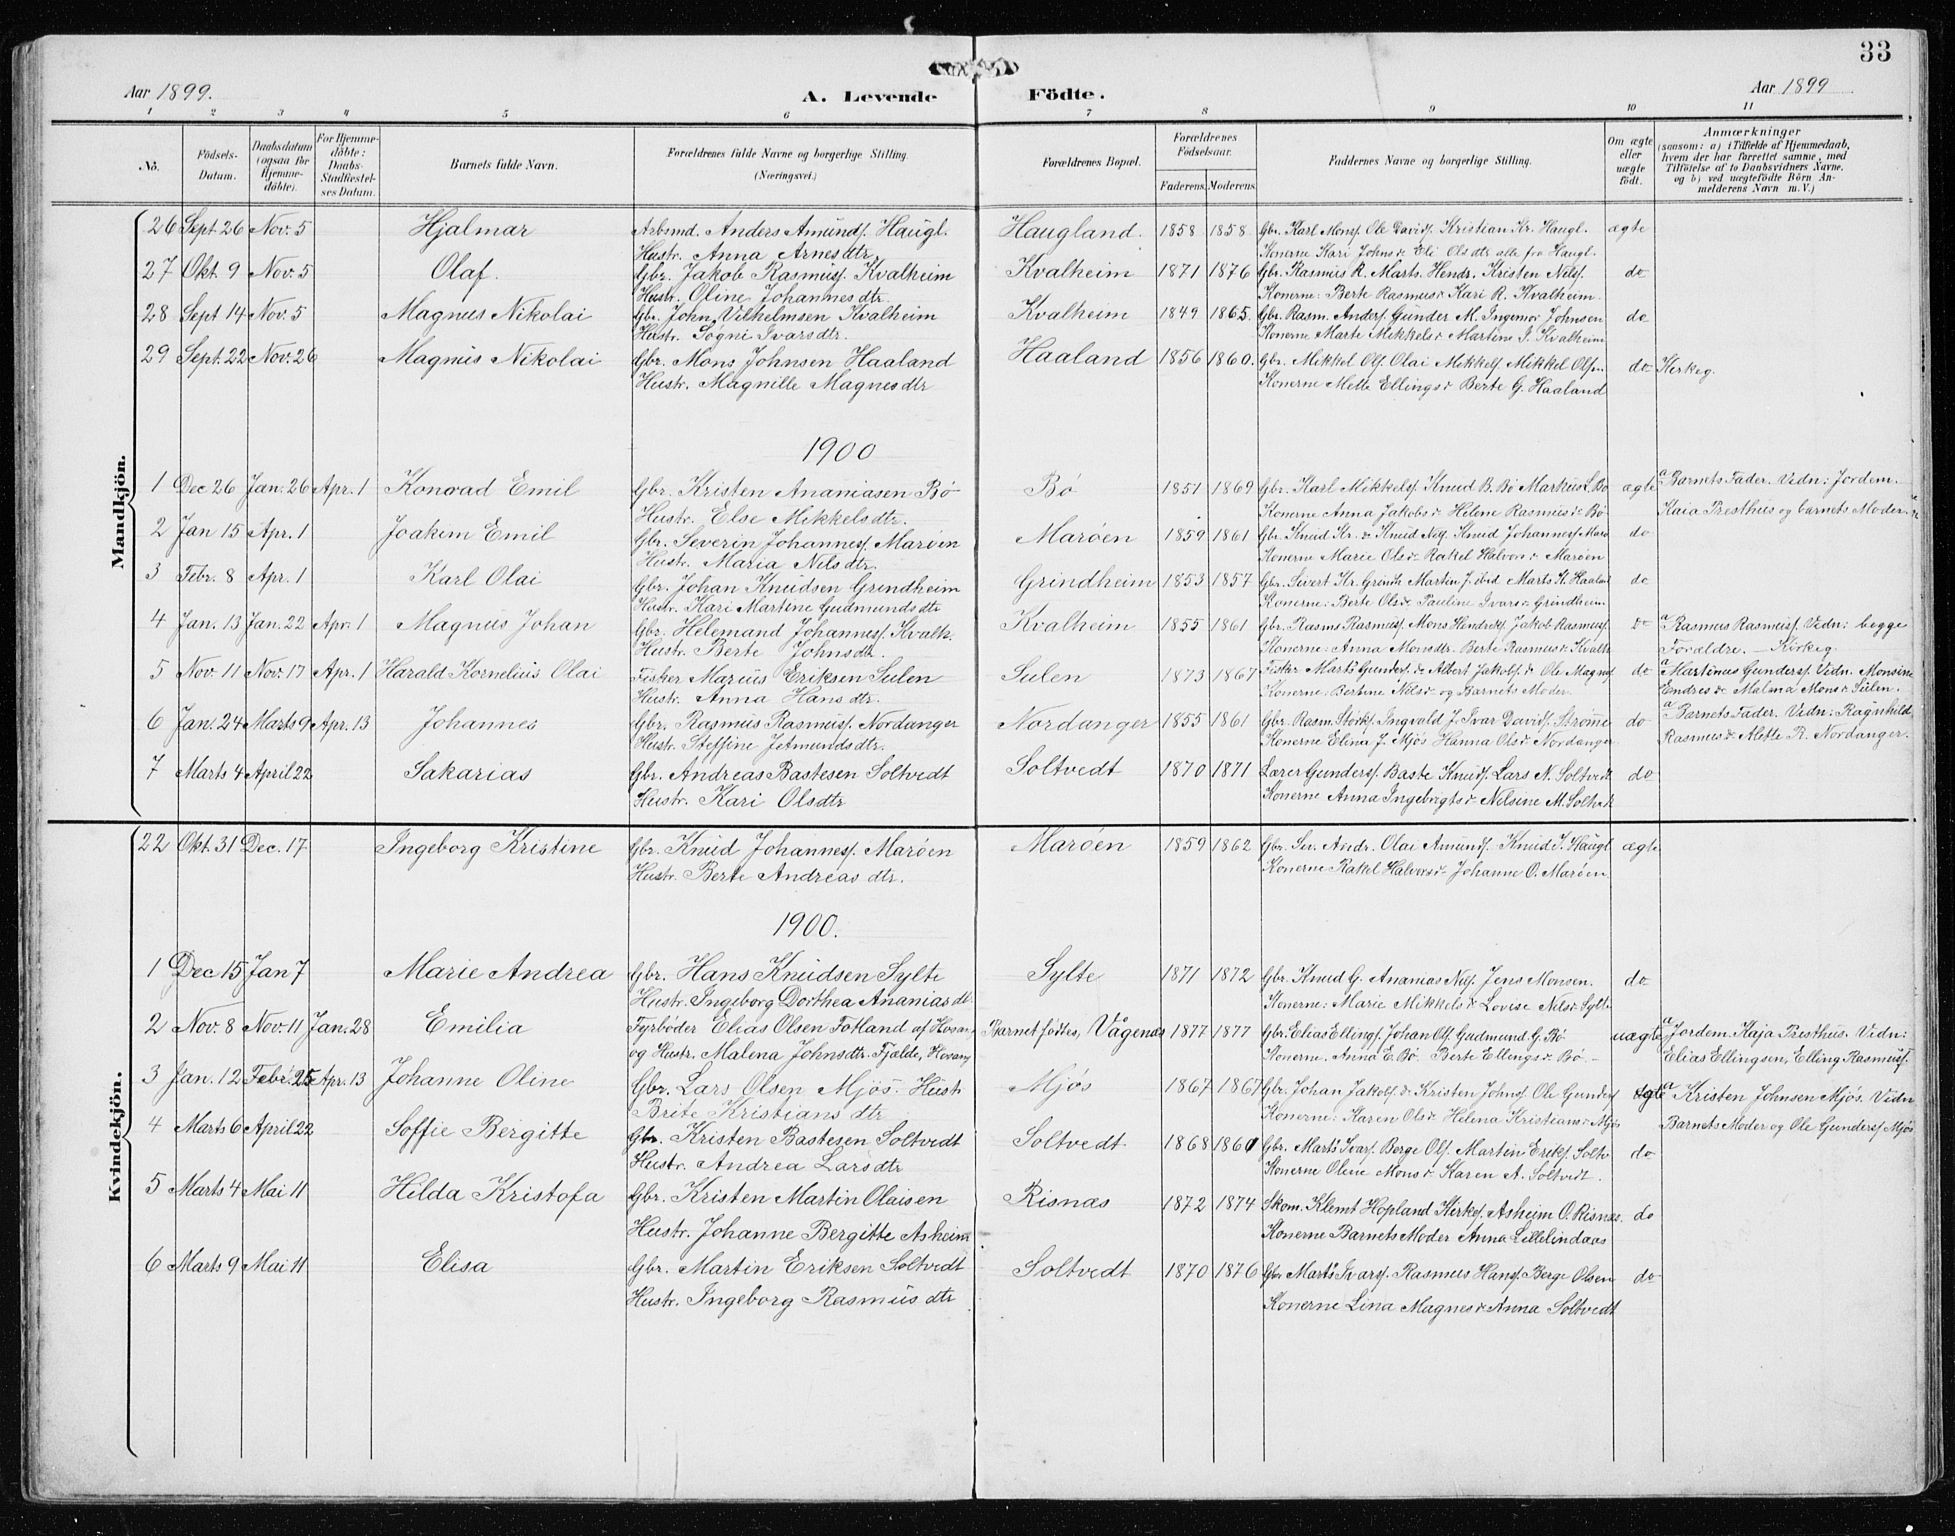 33
Aar 1899.
A. Levende Födte.
Aar 1899
1 2 3 4 5 6 7 8 9 10 11
No.
Födsels-Datum.
Daabsdatum (ogsaa for Hjemme-döbte).
For Hjemme-döbte: Daabs-Stadfæstel-ses Datum.
Barnets fulde Navn.
Forældrenes fulde Navne og borgerlige Stilling. (Næringsvei.)
Forældrenes Bopæl.
Forældrenes Födselsaar.
Faderens. Moderens.
Faddernes Navne og borgerlige Stilling.
Om ægte eller uægte födt.
Anmærkninger
(saasom: a) i Tilfælde af Hjemmedaab, hvem der har forrettet samme, med Tilföielse af to Daabsvidners Navne, og b) ved uægtefödte Börn An-melderens Navn m. V.)
Mandkjön.
26 Sept 26 Nov. 5 Hjalmar Arbsmd. Anders Amunds. Haugl. Haugland. 1858 1858 Gbr. Karl Mons. Ole Davids. Kristian Kr. Haugl. ægte
Hustr. Anna Arnesdtr. Konerne Kari Johnsd. Eli Olsdtr alle fra Haugl.
27 Okt. 9 Nov. 5 Olaf. Gbr. Jakob Rasmuss. Kvalheim Kvalheim 1871 1876 Gbr. Rasmus R. Marts. Hendr. Kristen Nils. do
Hustr. Oline Johannesdtr. Konerne: Berte Rasmusd. Kari R. Kvalheim.
28 Sept 14 Nov. 5 Magnus Nikolai Gbr. John Vilhelmsen Kvalheim Kvalheim 1849 1865. Gbr. Rasm. Anders. Gunder M. Ingemor Johnsen do
Hustr. Sogni Ivarsdtr. Konerne Marte Mikkelsd. Martine J. Kvalheim
29 Sept. 22 Nov. 26 Magnus Nikolai Gbr. Mons Johnsen Haaland Haaland 1856 1860. Gbr. Mikkel Ols. Olai Mikkels. Mikkel Olsen do Kirkeg.
Hustr. Magnille Magnesdtr Konerne Mette Ellingsd. Berte G. Haaland
1900
1 Dec 26 Jan. 26 Apr. 1 Konrad Emil Gbr. Kristen Ananiasen Bö Bö 1851 1869 Gbr. Karl Mikkels. Knud B. Bö Markus L. Bö ægte a Barnets Fader. Vidn: Jordem.
Hustr. Else Mikkelsdtr. Konerne Anna Jakobsd. Helene Rasmusd. Bö Kaia Presthus og barnets Moder.
2 Jan 15 Apr. 1 Joakim Emil Gbr. Severin Johanness. Maröen Maröen 1859 1861 Gbr. Knud Kr. Knud Nils. Knud Johanness Marö do
Hustr. Maria Nilsdtr. Konerne Marie Olsd. Rakel Halvorsd. Maröen
3 Febr. 8 Apr. 1 Karl Olai Gbr. Johan Knudsen Grindheim Grindheim 1853 1857 Gbr. Sivert Kr. Grindh. Martin J. ibid Marts K. Haaland do
Hustr. Kari Martine Gudmundsdtr Konerne: Berte Olsd. Pauline Ivarsd. Grindheim
4 Jan. 13 Jan. 22 Apr. 1 Magnus Johan Gbr. Helemand Johanness. Kvalh. Kvalheim 1855 1861 Gbr. Rasms Rasmuss. Mons Hendrks. Jakob Rasmuss do a Rasmus Rasmuss. Vidn: begge
Hustr. Berte Johnsdtr. Konerne: Anna Monsdtr. Berte Rasmusd. Kvalh. Forældre. — Kirkeg.
5 Nov. 11 Nov. 17 Apr. 1 Harald Kornelius Olai Fisker Marius Eriksen Sulen Sulen 1873 1867 Fisker Marts Gunders. Albert Jakobs. Ole Magns do a Martinus Gunders. Vidn. Monsine
Hustr. Anna Hansdtr. Konerne: Bertine Nilsd. og Barnets Moder Endresd. Malena Monsd. Sulen.
6 Jan. 24 Marts 9 Apr. 13 Johannes Gbr. Rasmus Rasmuss. Nordanger Nordanger 1855 1861 Gbr. Rasm. Störks. Ingvald J. Ivar Davids. Strömme do a Barnets Fader. Vidn: Ragnhild
Hustr. Steffine Jetmundsdtr. Konerne Elina J. Mjös Hanna Olsd. Nordanger Rasmusd. Alette R. Nordanger.
7 Marts 4 April 22 Sakarias Gbr. Andreas Bastesen Soltvedt Soltvedt 1870 1871 Lærer Gunders. Baste Knuds. Lars N. Soltvedt do
Hustr. Kari Olsdtr Konerne Anna Ingebrigtsd. Nilsine M. Soltvdt
Kvindekjön.
22 Okt. 31 Dec. 17 Ingeborg Kristine Gbr. Knud Johanness. Maröen Maröen 1859 1862 Gbr. Sev. Andr. Olai Amunds. Knud J. Haugl ægte
Hustr. Berte Andreasdtr. Konerne Rakel Halvorsd. Johanne O. Maröen
1900.
1 Dec 15 Jan 7 Marie Andrea Gbr. Hans Knudsen Sylte Sylte 1871 1872 Gbr. Knud G. Ananias Nils. Jens Monsen. do
Hustr. Ingeborg Dorthea Ananiasdt. Konerne: Marie Mikkelsd. Lovise Nilsd. Sylte
2 Nov. 8 Nov. 11 Jan. 28 Emilia Fyrböder Elias Olsen Fotland af Hosang Barnet födtes, Vågenes 1877 1877 Gbr. Elias Ellings. Johan Ols. Gudmund G. Bö uægte a Jordem. Kaja Presthus. Vidn:
og Hustr. Malena Johnsdtr. Fjalde, Hosang Konerne. Anna E. Bö. Berte Ellingsd. Bö Elias Ellingsen, Elling Rasmuss.
3 Jan. 12 Febr. 25 Apr. 13 Johanne Oline Gbr. Lars Olsen Mjös. Hustr Mjös 1867 1867 Gbr. Johan Jakobs. Kristen Johns. Ole Gunders ægte a Kristen Johnsen Mjös. Vidn
Brite Kristiansdtr Konerne: Karen Olsd. Helena Kristiansd. Mjös Barnets Moder og Ole Gunders. Mjös
4 Marts 6 April 22 Soffie Bergitte Gbr. Kristen Bastesen Soltvedt Soltvedt 1868 1860 Gbr. Marts Ivars. Berge Ols. Martin Eriks. Soltv. do
Hustr. Andrea Larsdtr Konerne Oline Monsd. Karen A. Soltvedt.
5 Marts 4 Mai 11 Hilda Kristofa Gbr. Kristen Martin Olaisen Risnæs 1872 1874 Skom. Klemt Hopland Kirkes. Asheim O. Risnæs. do
Hustr. Johanne Bergitte Asheim Konerne Barnets Moder Anna Lillelindaas
6 Marts 9 Mai 11 Elisa Gbr. Martin Eriksen Soltvedt Soltvedt 1870 1876 Gbr Marts Ivars. Rasmus Hans. Berge Olsen do
Hustr. Ingeborg Rasmusdtr Konerne Lina Magnesd. Anna Soltvedt